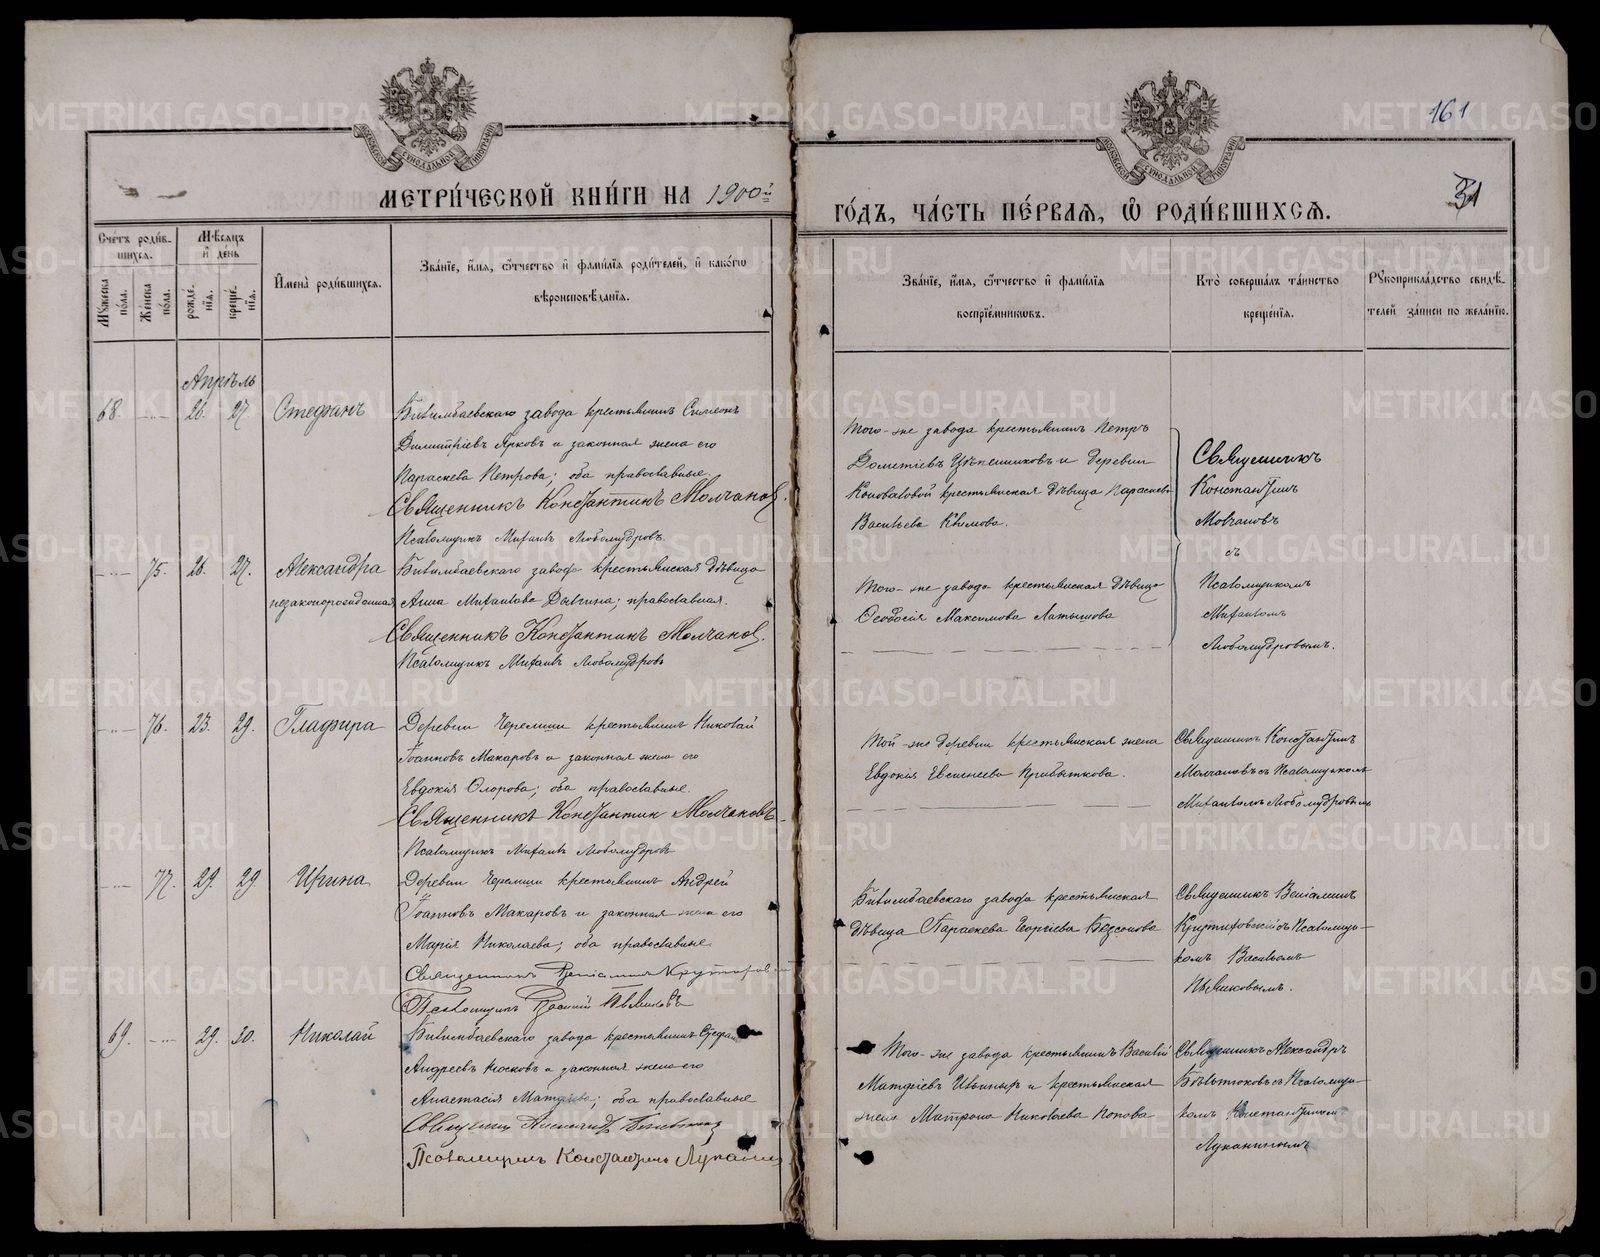 161
31
МЕТРИ́ЧЕСКОЙ КНИ́ГИ НА 1900й
ГО́ДЪ, ЧА́СТЬ ПЕ́РВАЯ, Ѡ РОДИ́ВШИХСЯ.
Сче́тъ роди́в-
шихся.
Му́жеска
по́ла.
Же́нска
по́ла.
Мѣ́сяцъ
и де́нь
рожде́-
нїя.
креще́-
нїя.
Имена̀ роди́вшихся.
Зва́нїе, и́мя, ѻ́тчество и фами́лїя роди́телей, и како́гѡ
вѣроисповѣ́данїя.
Зва́нїе, и́мя, ѻ́тчество и фами́лїя
воспрїе́мникѡвъ.
Кто̀ соверша́лъ та́инство
креще́нїя.
Рукоприкла́дство свидѣ́-
телей за́писи по жела́нїю.
Апрѣль
68 26. 27. Стефанъ
Билимбаевскаго завода крестьянинъ Симеонъ
Димитріевъ Ярковъ и законная жена его
Параскева Петрова; оба православные.
Священникъ Константинъ Молчановъ.
Псаломщикъ Михаилъ Любомудровъ.
Того-же завода крестьянинъ Петръ
Дометіевъ и деревни
Коноваловой крестьянская дѣвица Параскева
Васильева
Священникъ
Константинъ
Молчановъ
съ
Псаломщикомъ
Михаиломъ
Любомудровымъ.
75. 26. 27. Александра
незаконорожденная
Билимбаевскаго завода крестьянская дѣвица
Анна Михаилова; православная.
Священникъ Константинъ Молчановъ.
Псаломщикъ Михаилъ Любомудровъ
Того-же завода крестьянская дѣвица
Ѳеодосія Максимова Латышова
76. 23. 29. Глафира
Деревни Черемши крестьянинъ Николай
Іоанновъ Макаровъ и законная жена его
Евдокія Флорова; оба православные.
Священникъ Константинъ Молчановъ
Псаломщикъ Михаилъ Любомудровъ
Той-же деревни крестьянская жена
Евдокія Евсигнеева Прибыткова.
Священникъ Константинъ
Молчановъ съ Псаломщикомъ
Михаиломъ Любомудровымъ
77. 29. 29. Ирина
Деревни Черемши крестьянинъ Андрей
Іоанновъ Макаровъ и законная жена его
Марія Николаева; оба православные.
Священникъ Веніаминъ
Псаломщикъ Василій Пьянковъ
Билимбаевскаго завода крестьянская
дѣвица Параскева Георгіева Безсонова
Священникъ Веніаминъ
съ Псаломщи-
комъ Васильемъ
Пьянковымъ.
69. 29. 30. Николай
Билимбаевскаго завода крестьянинъ Стефанъ
Андреевъ Носковъ и законная жена его
Анастасія Матфіева; оба православные
Священникъ Александръ
Псаломщикъ Константинъ Луканинъ
Того-же завода крестьянинъ Василій
Матфіевъ и крестьянская
жена Матрона Николаева Попова
Священникъ Александръ
съ Псаломщи-
комъ Константиномъ
Луканинымъ
METRIKI.GASO-URAL.RU